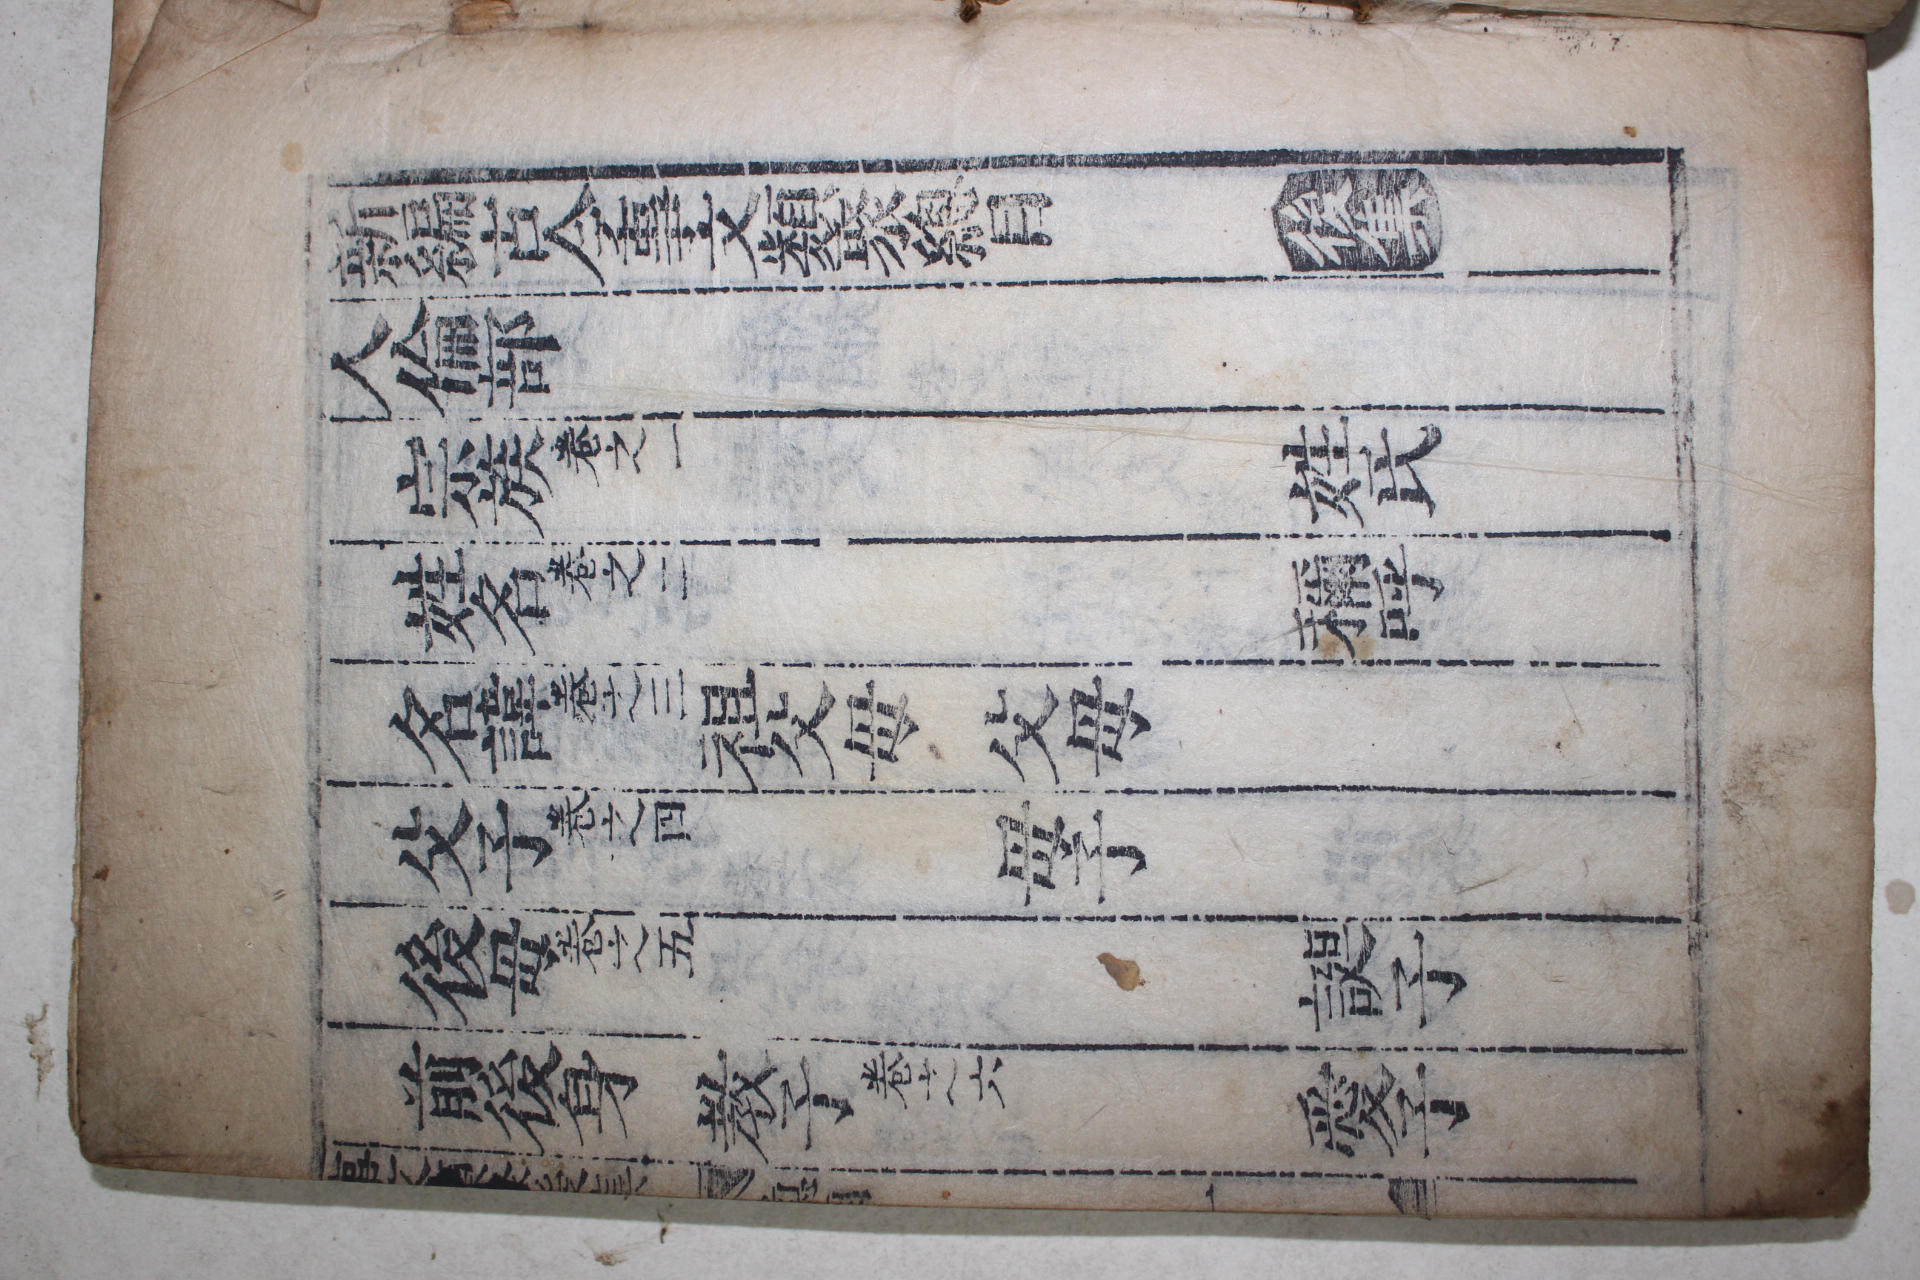 新編古今事文類聚總目 後集
人倫部
宗族卷之一 姓氏
姓名卷之二 稱呼
名諱卷之三 祖父母 父母
父子卷之四 母子
後母卷之五 誤子
前後身 教子卷之六 愛子